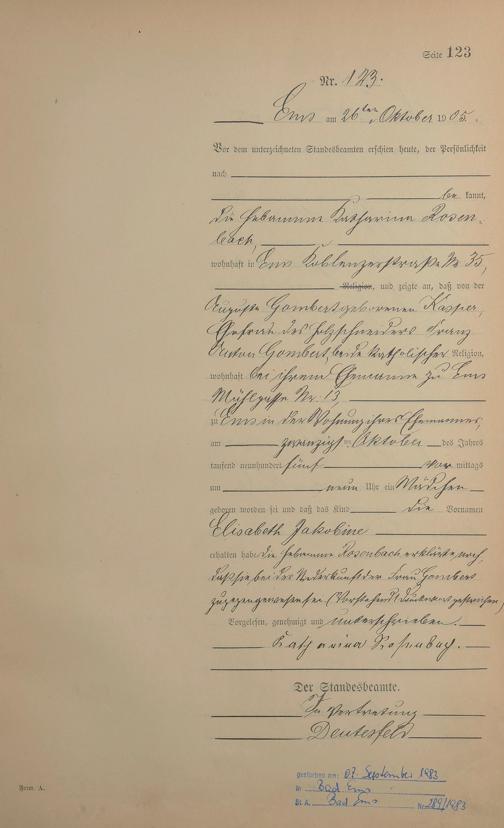 Seite 123
Nr. 123.
Ems am 26ten Oktober 1905.
Vor dem unterzeichneten Standesbeamten erschien heute, der Persönlichkeit
nach
be kannt,
die Hebamme Katharina Rosen-
bach,
wohnhaft in Ems Koblenzerstraße Nr 35,
Religion, und zeigte an, daß von der
Auguste Gombert geborenen Kasper,
Ehefrau des Holzschneiders Franz
Anton Gombert, beide katholischer Religion,
wohnhaft bei ihrem Ehemanne zu Ems
Mühlgasse Nr. 13
zu Ems in der Wohnung ihres Ehemannes,
am zwanzigsten Oktober des Jahres
tausend neunhundert fünf vor mittags
um neun Uhr ein Mädchen
geboren worden sei und daß das Kind die Vornamen
Elisabeth Jakobine
erhalten habe. Die Hebamme Rosenbach erklärte noch,
daß sie bei der Niederkunft der Frau Gombert
zugegen gewesen sei (Vorstehend 1 Druckwort gestrichen)
Vorgelesen, genehmigt und unterschrieben.
Katharina Rosenbach.
Der Standesbeamte.
In Vertretung
Deutesfeld
gestorben am: 07. September 1983
in Bad Ems
St. A. Bad Ems Nr. 289/1983
Form. A.